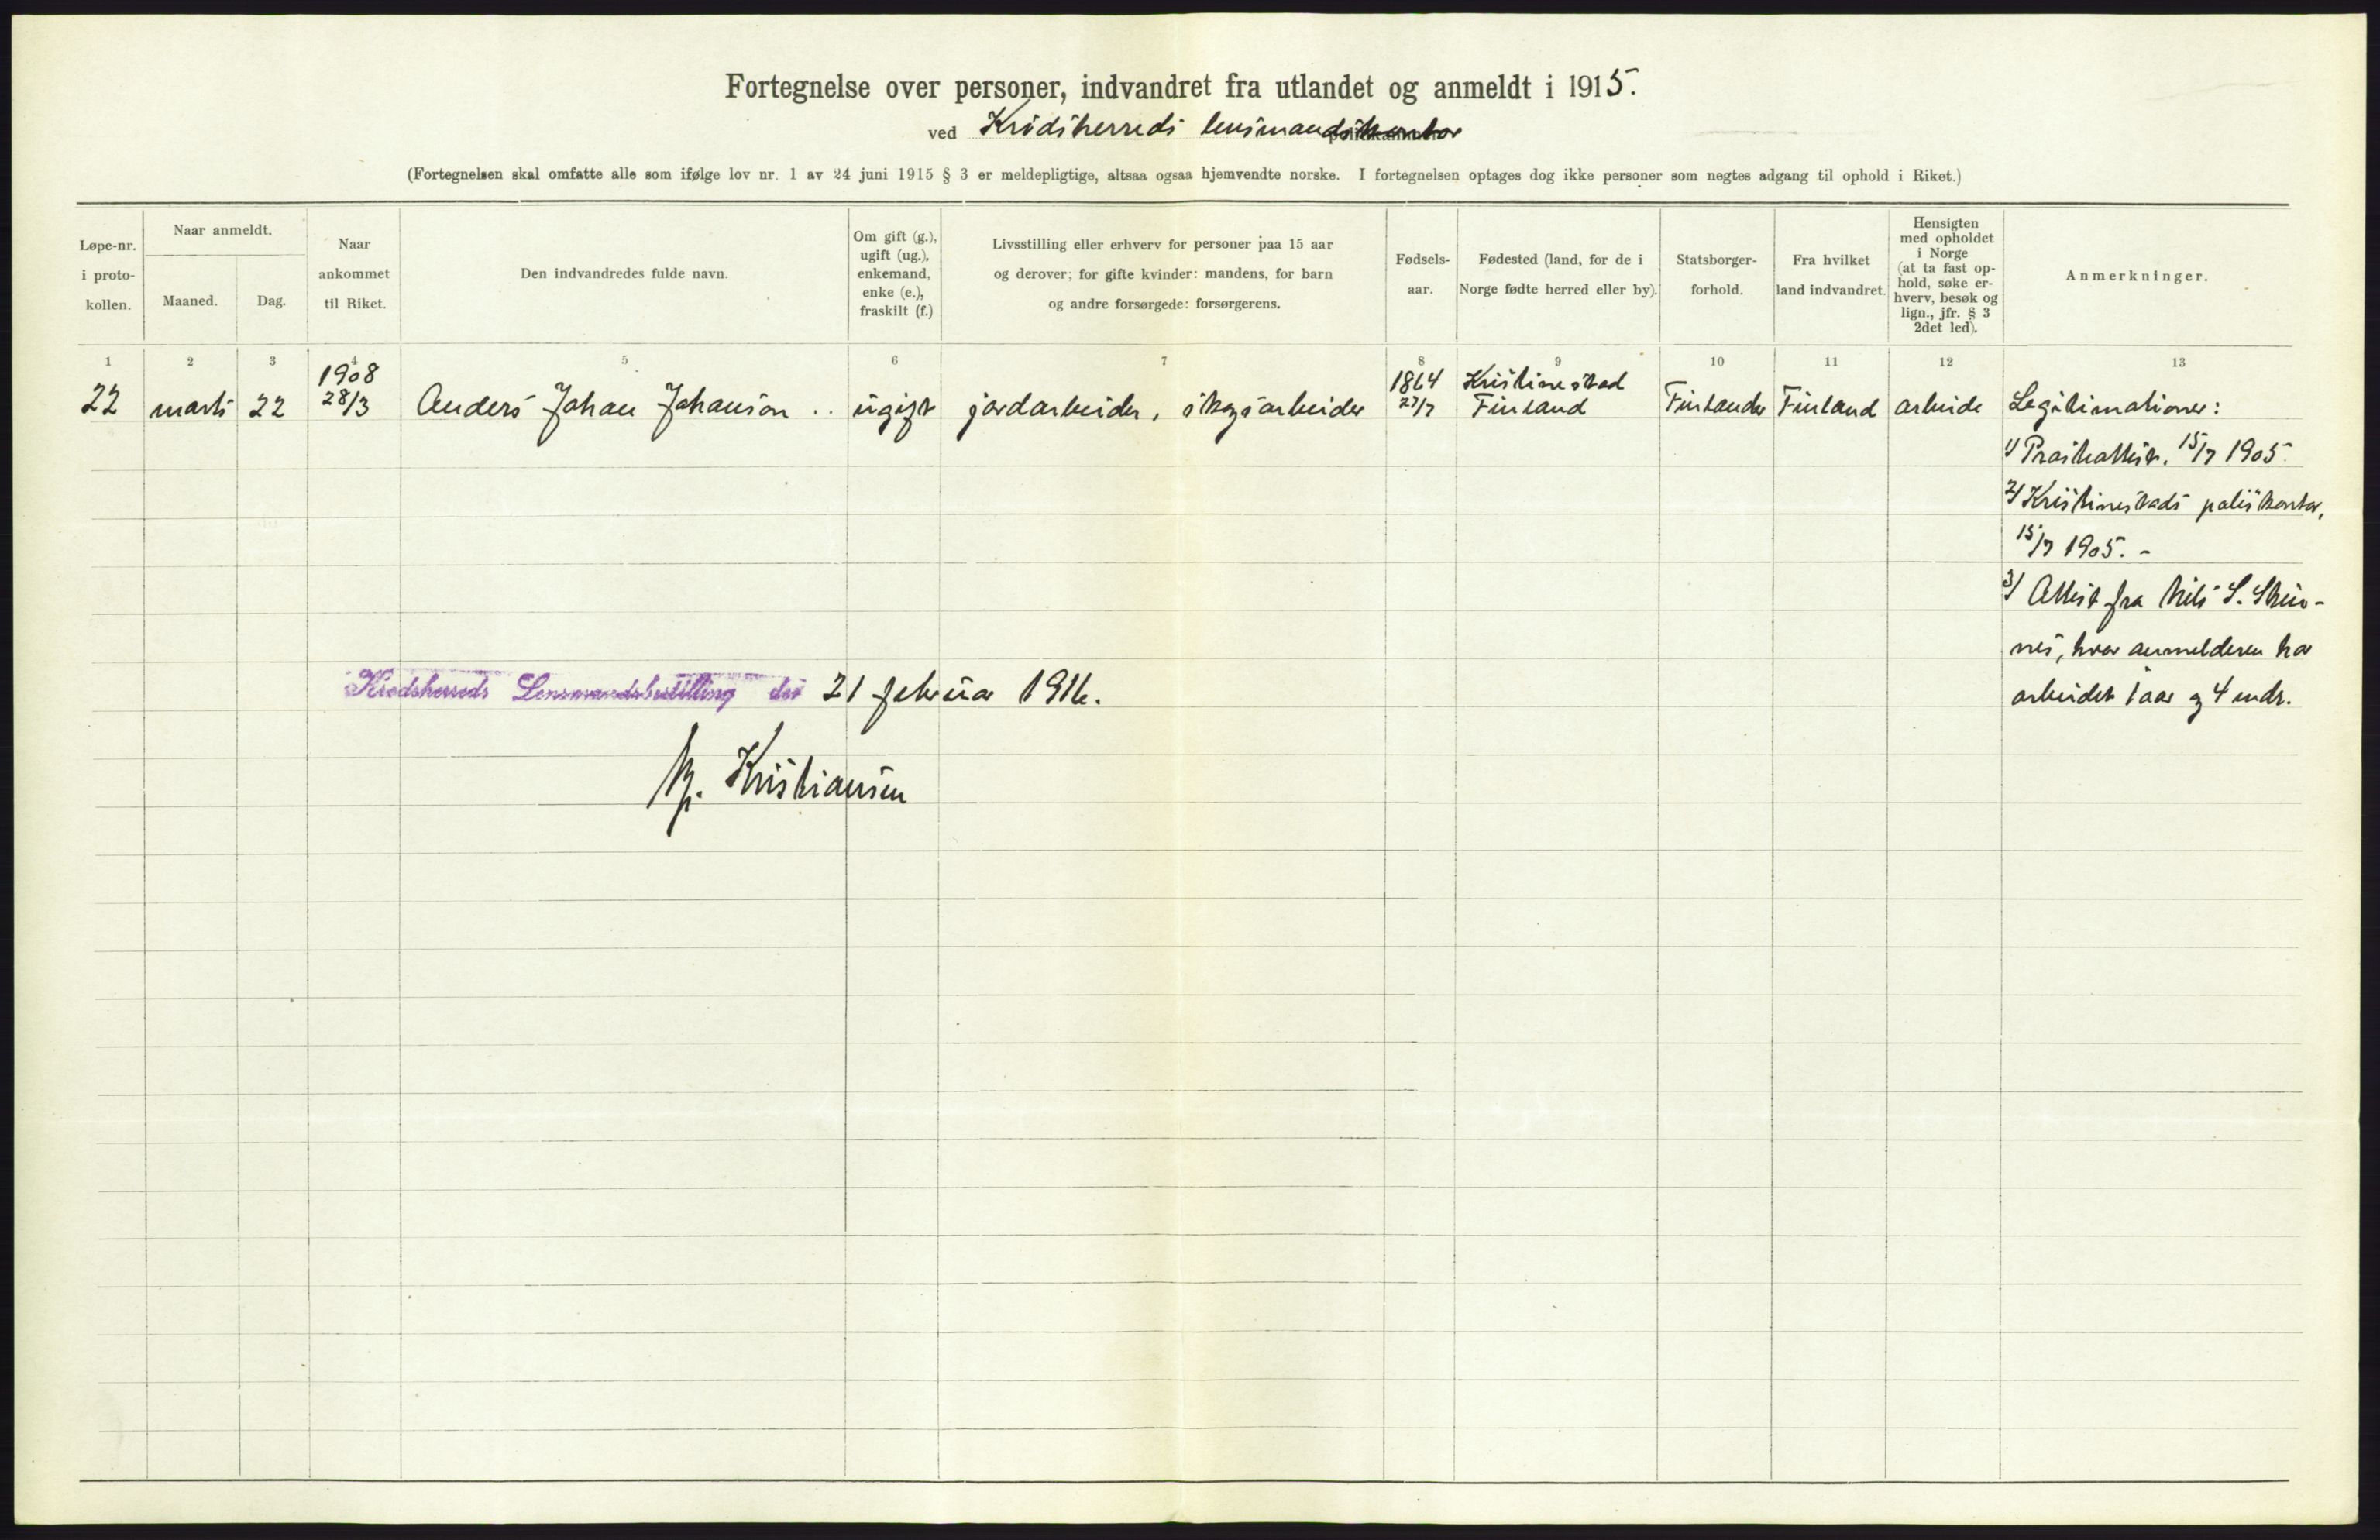 Fortegnelse over personer, indvandret fra utlandet og anmeldt i 1915.
ved Krødsherreds lensmandskontor
(Fortegnelsen skal omfatte alle som ifølge lov nr. 1 av 24 juni 1915 § 3 er meldepligtige, altsaa ogsaa hjemvendte norske. I fortegnelsen optages dog ikke personer som negtes adgang til ophold i Riket.)
Løpe-nr.
i proto-
kollen.
Naar anmeldt.
Maaned.
Dag.
Naar
ankommet
til Riket.
Den indvandredes fulde navn.
Om gift (g.),
ugift (ug.),
enkemand,
enke (e.),
fraskilt (f.)
Livsstilling eller erhverv for personer paa 15 aar
og derover; for gifte kvinder: mandens, for barn
og andre forsørgede: forsørgerens.
Fødsels-
aar.
Fødested (land, for de i
Norge fødte herred eller by).
Statsborger-
forhold.
Fra hvilket
land indvandret.
Hensigten
med opholdet
i Norge
(at ta fast op-
hold, søke er-
hverv, besøk og
lign., jfr. § 3
2det led).
Anmerkninger.
1 2 3 4 5 6 7 8 9 10 11 12 13
1908 1864 Kristinestad
22 marts 22 28/3 Anders Johan Johanson .. ugift jordarbeider, skogsarbeider 27/7 Finland Finlander Finland arbeide Legitimationer:
1) Prestattest. 15/7 1905.
2) Kristinestads poliskontor,
15/7 1905. -
3) Attest fra Nils S.
nes, hvor anmelderen har
arbeidet 1 aar og 4 mdr.
Krødsherreds Lensmandsbestilling den 21 februar 1916.
Kristiansen